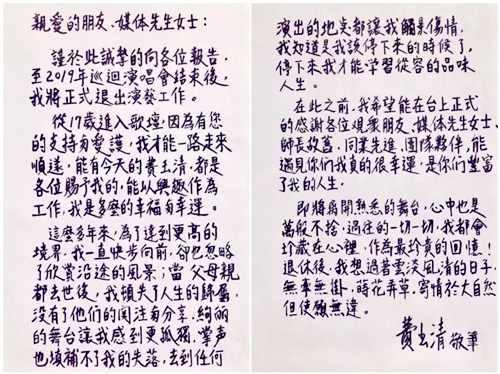 親愛的朋友、媒体先生女士：
謹於此誠摯的向各位報告，
至2019年巡迴演唱會結束後，
我將正式退出演藝工作。
從17歲進入歌壇，因為有您
的支持与愛護，我才能一路走來
順遂，能有今天的費玉清，都是
各位賜予我的，能以興趣作為
工作，我是多麼的幸福与幸運。
這麼多年來，為了達到更高的
境界，我一直快步向前，卻也忽略
了欣賞沿途的風景；當父母親
都去世後，我頓失了人生的歸屬，
沒有了他們的関注与分享，絢麗
的舞台讓我感到更孤獨，掌声
也填補不了我的失落，去到任何
演出的地点都讓我觸景傷情，
我知道是我該停下來的時候了，
停下來我才能学習從容的品味
人生。
在此之前，我希望能在台上正式
的感謝各位观衆朋友、媒体先生女士、
師長故舊、同業先進、团隊夥伴，能
遇見你們我真的很幸運，是你們豐富
了我的人生。
即將离開熟悉的舞台，心中也是
萬般不捨，過往的一切一切，我都會
珍藏在心裡，作為最珍貴的回憶！
退休後，我想過著雲淡風清的日子，
無事無掛，蒔花弄草，寄情於大自然
但使願無違。
費玉清 敬筆